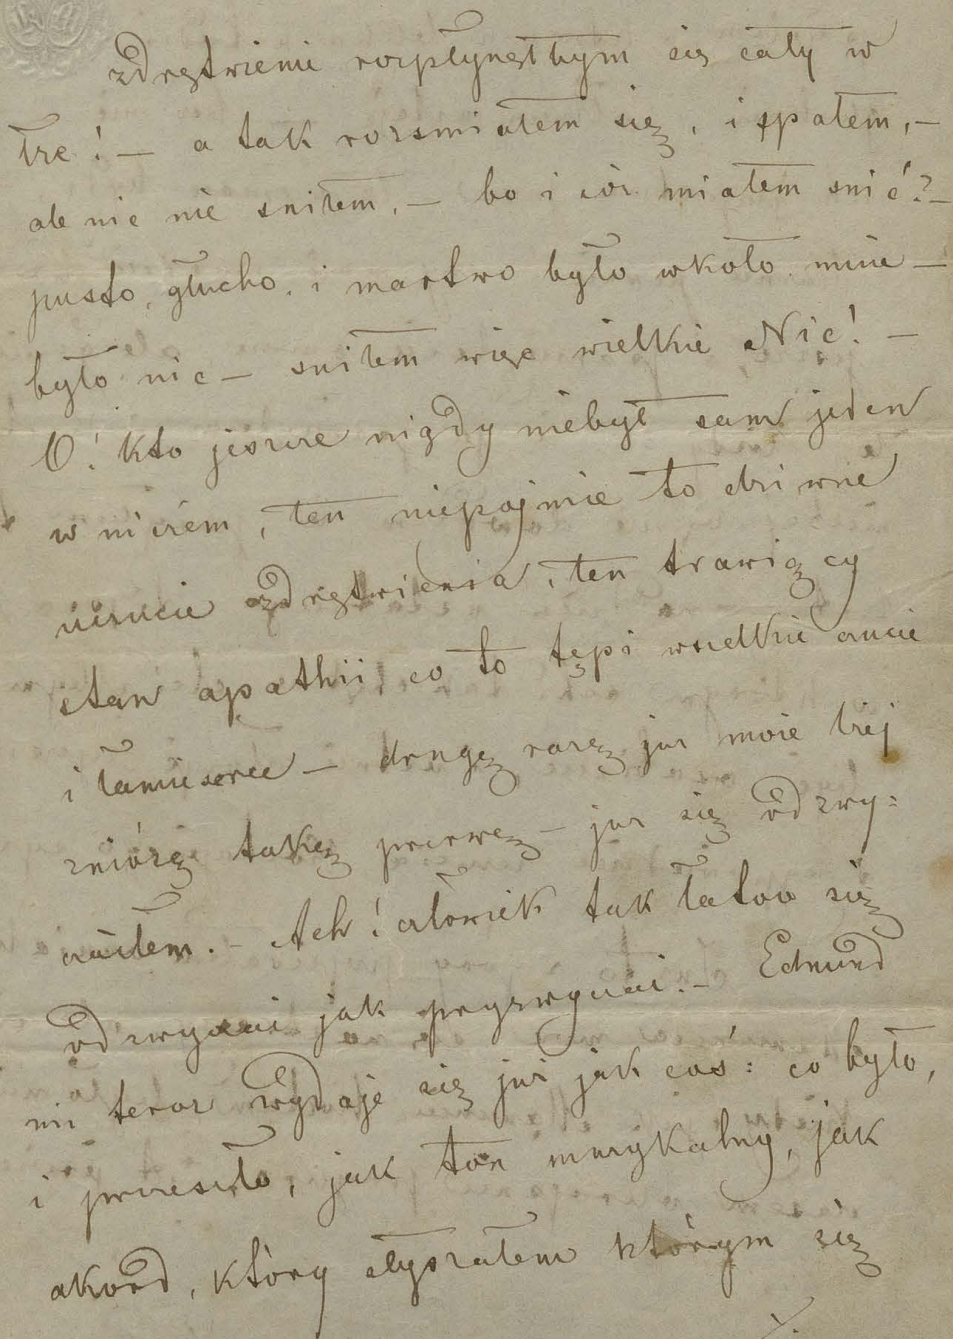 zdrętwieniu rozpłynęłbym się cały w
łzę! — a tak rozśmiałem się, i spałem, —
ale nic nie sniłem, — bo i cóż miałem snić? —
pusto, głucho, i martwo było wkoło mnie —
było nic — sniłem więc wielkie Nic! —
O! kto jeszcze nigdy niebył sam jeden
w niczem, ten niepojmie to dziwne
uczucie zdrętwienia, ten trawiący
stan apathii, co to tępi wszelkie czucie
i łamie serce — drugą razą już moie lżej
zniósę taką przerwę — już się odzwy=
czaiłem. — Ach! człowiek tak łatwo się
odzwyczai jak przyzwyczai. — Edmund
mi teraz wydaje się już jak coś: co było,
i przeszło, jak ton muzykalny, jak
akord, który słyszałem którym się